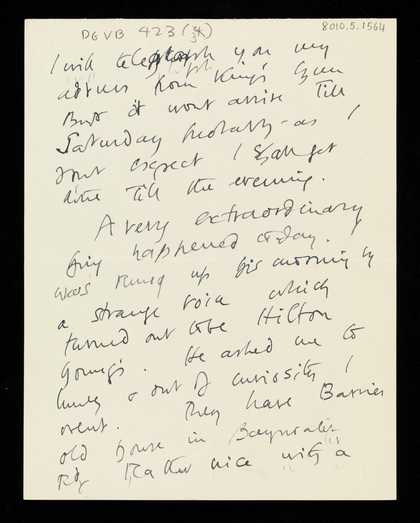 DGVB 423 (4/5)
8010.5.1564
I will telegraph you my
address from King's Lynn
But it wont arrive Till
Saturday probably - as I
dont expect I shall get
there Till the evening.
A very extraordinary
thing happened today. I
was rung up this morning by
a strange voice which
turned out to be Hilton
Young's. He asked me to
lunch & out of curiosity I
went. They have Barries
old house in Bayswater
Rd. Rather nice with a